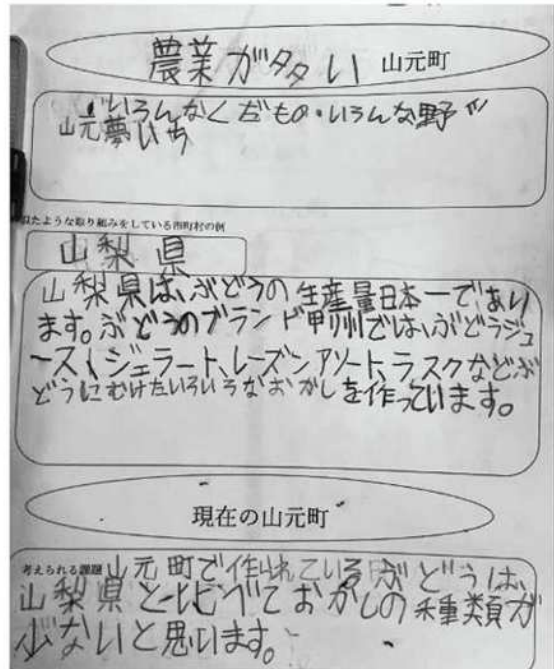 農業がタタい 山元町
いろんなくだもの・いろんな野
山元夢いち
似たような取り組みをしている市町村の例
山梨県
山梨県は、ぶどうの生産量日本一であり
ます。ぶどうのブランド甲州では、ぶどうジュ
ース、ジェラート、レーズンアソート、ラスクなどぶ
どうにむけたいろいろなおかしを作っています。
現在の山元町
考えられる課題 山元町で作られているぶどうは、
山梨県と比べておかしの種類が
少ないと思います。